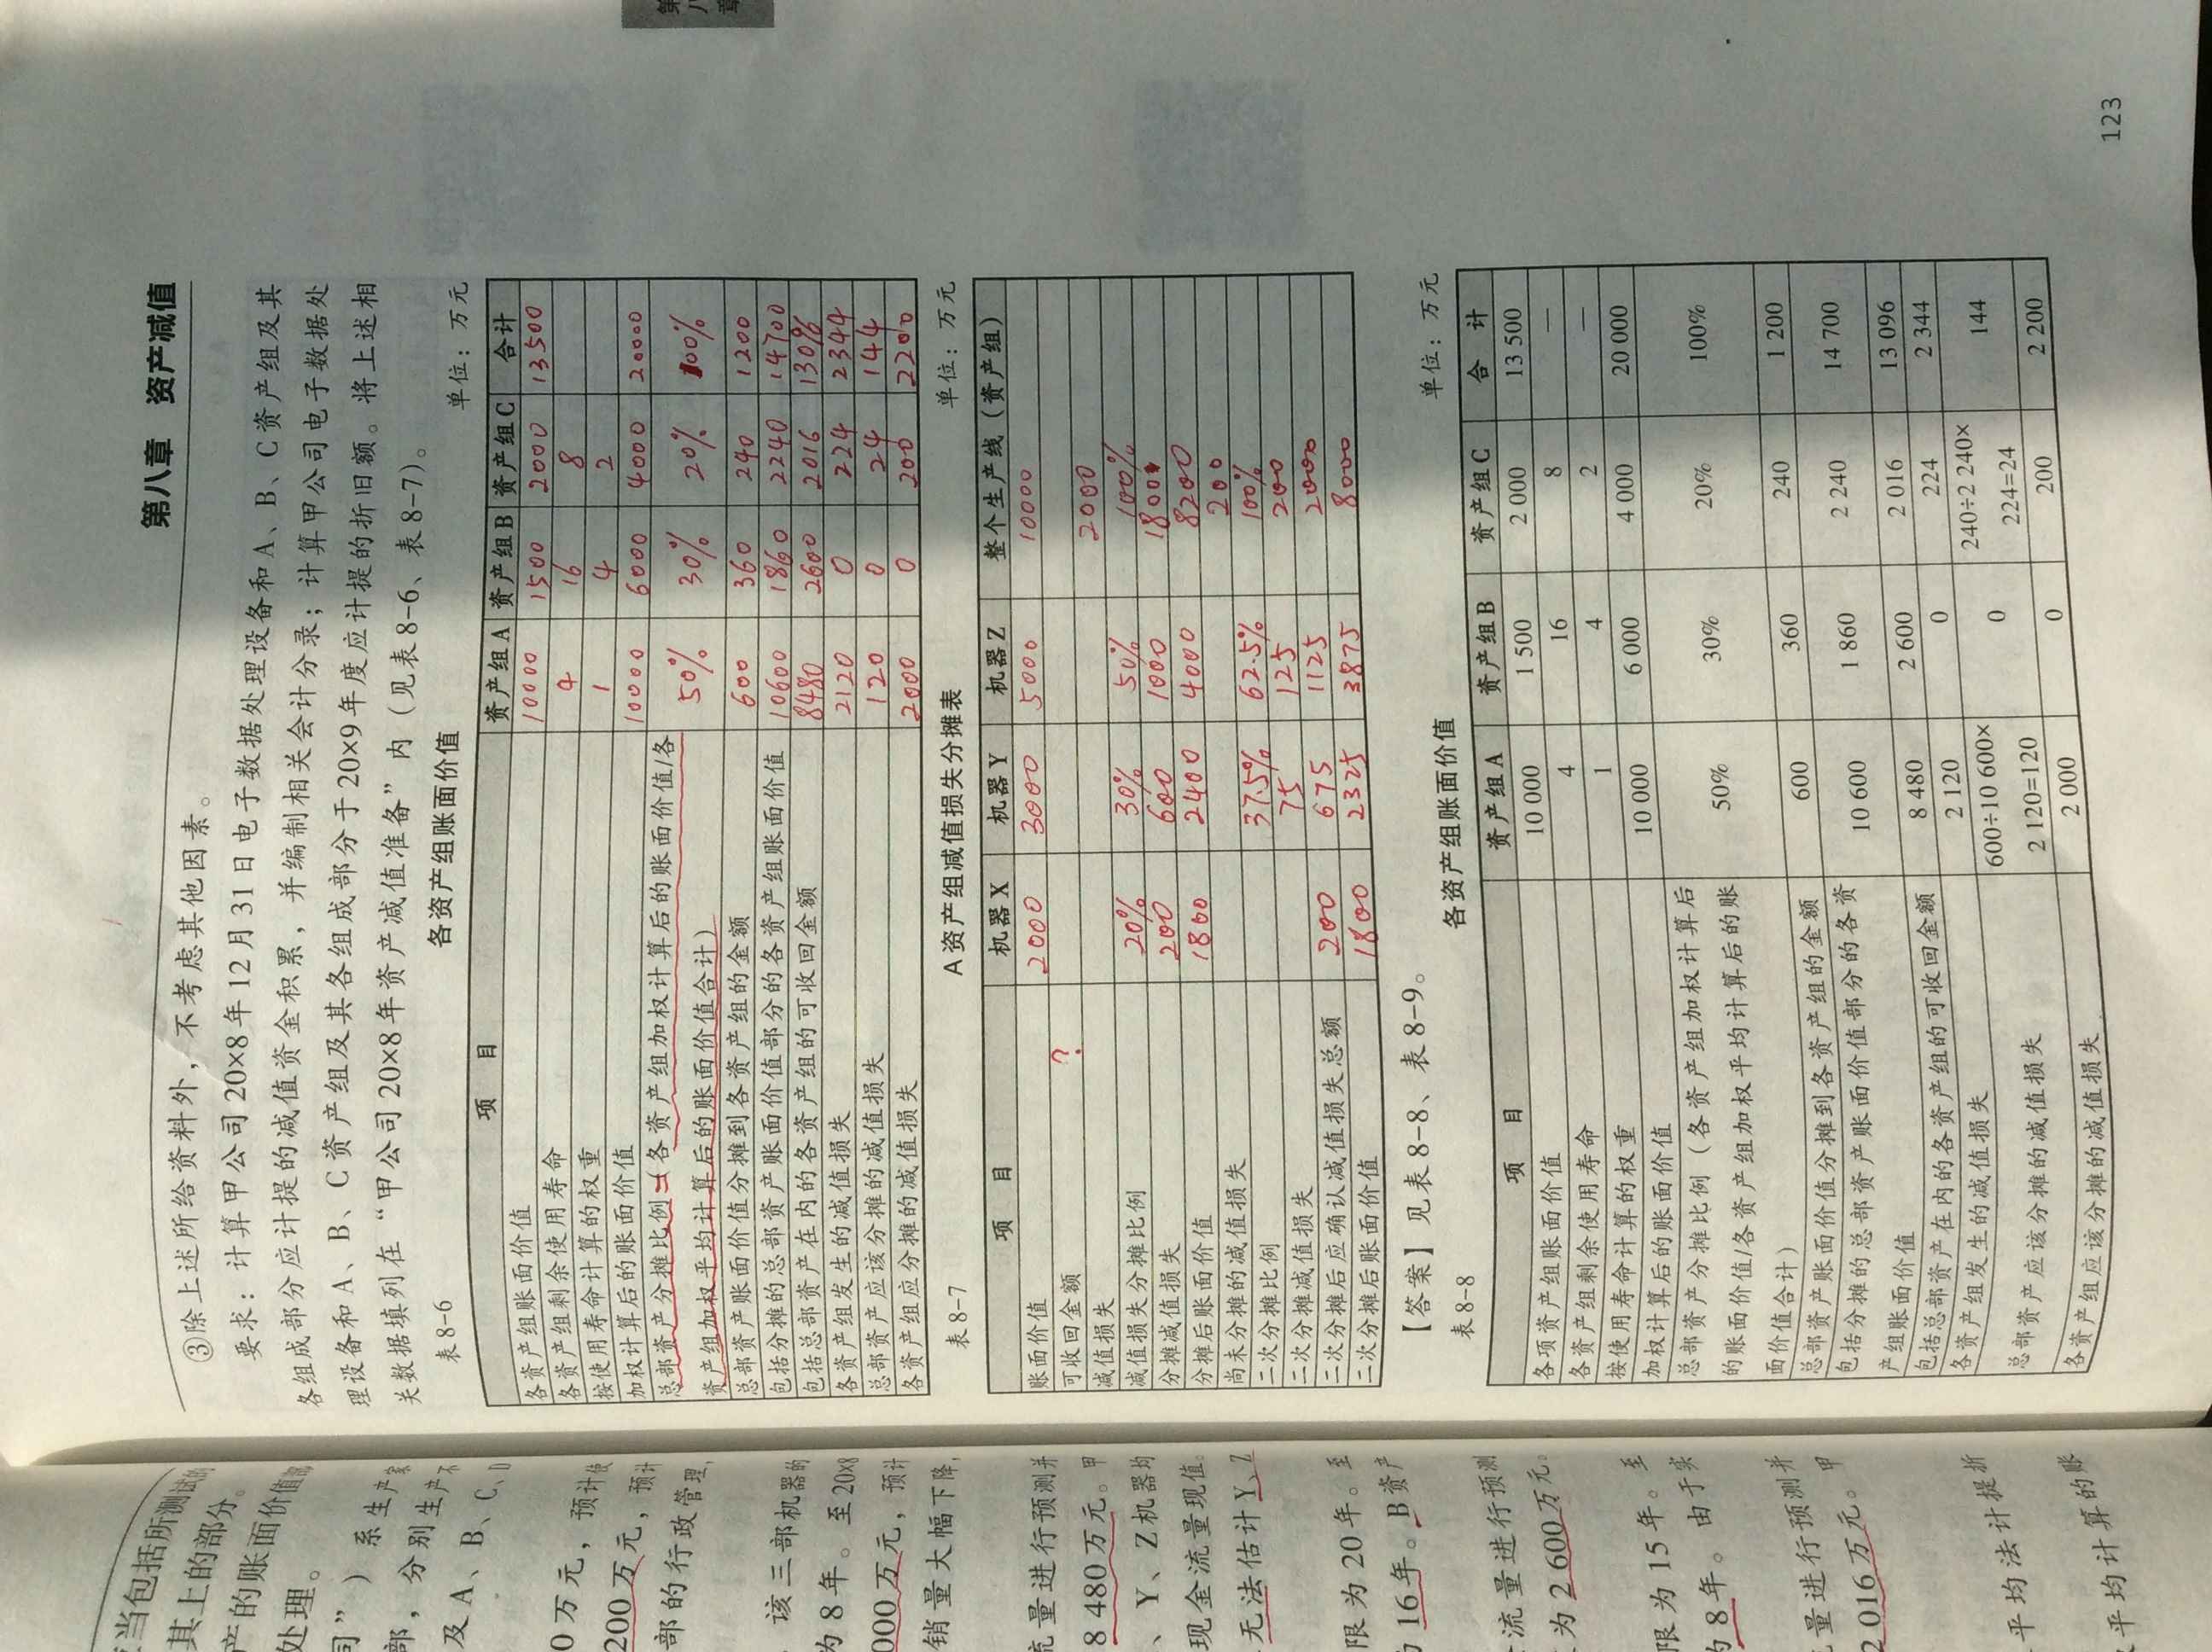 第八章 资产减值
③除上述所给资料外，不考虑其他因素。
要求：计算甲公司20×8年12月31日电子数据处理设备和A、B、C资产组及其
各组成部分应计提的减值资金积累，并编制相关会计分录；计算甲公司电子数据处
理设备和A、B、C资产组及其各组成部分于20×9年度应计提的折旧额。将上述相
关数据填列在“甲公司20×8年资产减值准备”内（见表8-6、表8-7）。
表8-6 各资产组账面价值 单位：万元
项 目 资产组A 资产组B 资产组C 合计
各资产组账面价值 10000 1500 2000 13500
各资产组剩余使用寿命 4 16 8
按使用寿命计算的权重 1 4 2
加权计算后的账面价值 10000 6000 4000 20000
总部资产分摊比例=（各资产组加权计算后的账面价值/各
资产组加权平均计算后的账面价值合计） 50% 30% 20% 100%
总部资产账面价值分摊到各资产组的金额 600 360 240 1200
包括分摊的总部资产账面价值部分的各资产组账面价值 10600 1860 2240 14700
包括总部资产在内的各资产组的可收回金额 8480 2600 2016
各资产组发生的减值损失 2120 0 224 2344
总部资产应该分摊的减值损失 120 0 24 144
各资产组应分摊的减值损失 2000 0 200 2200
表8-7 A资产组减值损失分摊表 单位：万元
项 目 机器X 机器Y 机器Z 整个生产线（资产组）
账面价值 2000 3000 5000 10000
可收回金额 ?
减值损失 2000
减值损失分摊比例 20% 30% 50% 100%
分摊减值损失 200 600 1000 1800
分摊后账面价值 1800 2400 4000 8200
尚未分摊的减值损失 200
二次分摊比例 37.5% 62.5% 100%
二次分摊减值损失 75 125 200
二次分摊后应确认减值损失总额 200 675 1125 2000
二次分摊后账面价值 1800 2325 3875 8000
【答案】见表8-8、表8-9。
表8-8 各资产组账面价值 单位：万元
项 目 资产组A 资产组B 资产组C 合 计
各项资产组账面价值 10 000 1 500 2 000 13 500
各资产组剩余使用寿命 4 16 8 —
按使用寿命计算的权重 1 4 2 —
加权计算后的账面价值 10 000 6 000 4 000 20 000
总部资产分摊比例（各资产组加权计算后
的账面价值/各资产组加权平均计算后的账
面价值合计） 50% 30% 20% 100%
总部资产账面价值分摊到各资产组的金额 600 360 240 1 200
包括分摊的总部资产账面价值部分的各资
产组账面价值 10 600 1 860 2 240 14 700
包括总部资产在内的各资产组的可收回金额 8 480 2 600 2 016 13 096
各资产组发生的减值损失 2 120 0 224 2 344
总部资产应该分摊的减值损失 600÷10 600×2 120=120 0 240÷2 240×224=24 144
各资产组应该分摊的减值损失 2 000 0 200 2 200
123
当包括所测试的
其上的部分。
产的账面价值部
处理。
司”）系生产家
部，分别生产不
及A、B、C、D
0万元，预计使
200万元，预计
部的行政管理，
该三部机器的
为8年。至20×8
000万元，预计
销量大幅下降，
流量进行预测并
8 480万元。甲
、Y、Z机器均
现金流量现值。
无法估计Y、Z
限为20年。至
16年。B资产
流量进行预测
为2 600万元。
限为15年。至
为8年。由于实
量进行预测并
2 016万元。甲
平均法计提折
平均计算的账